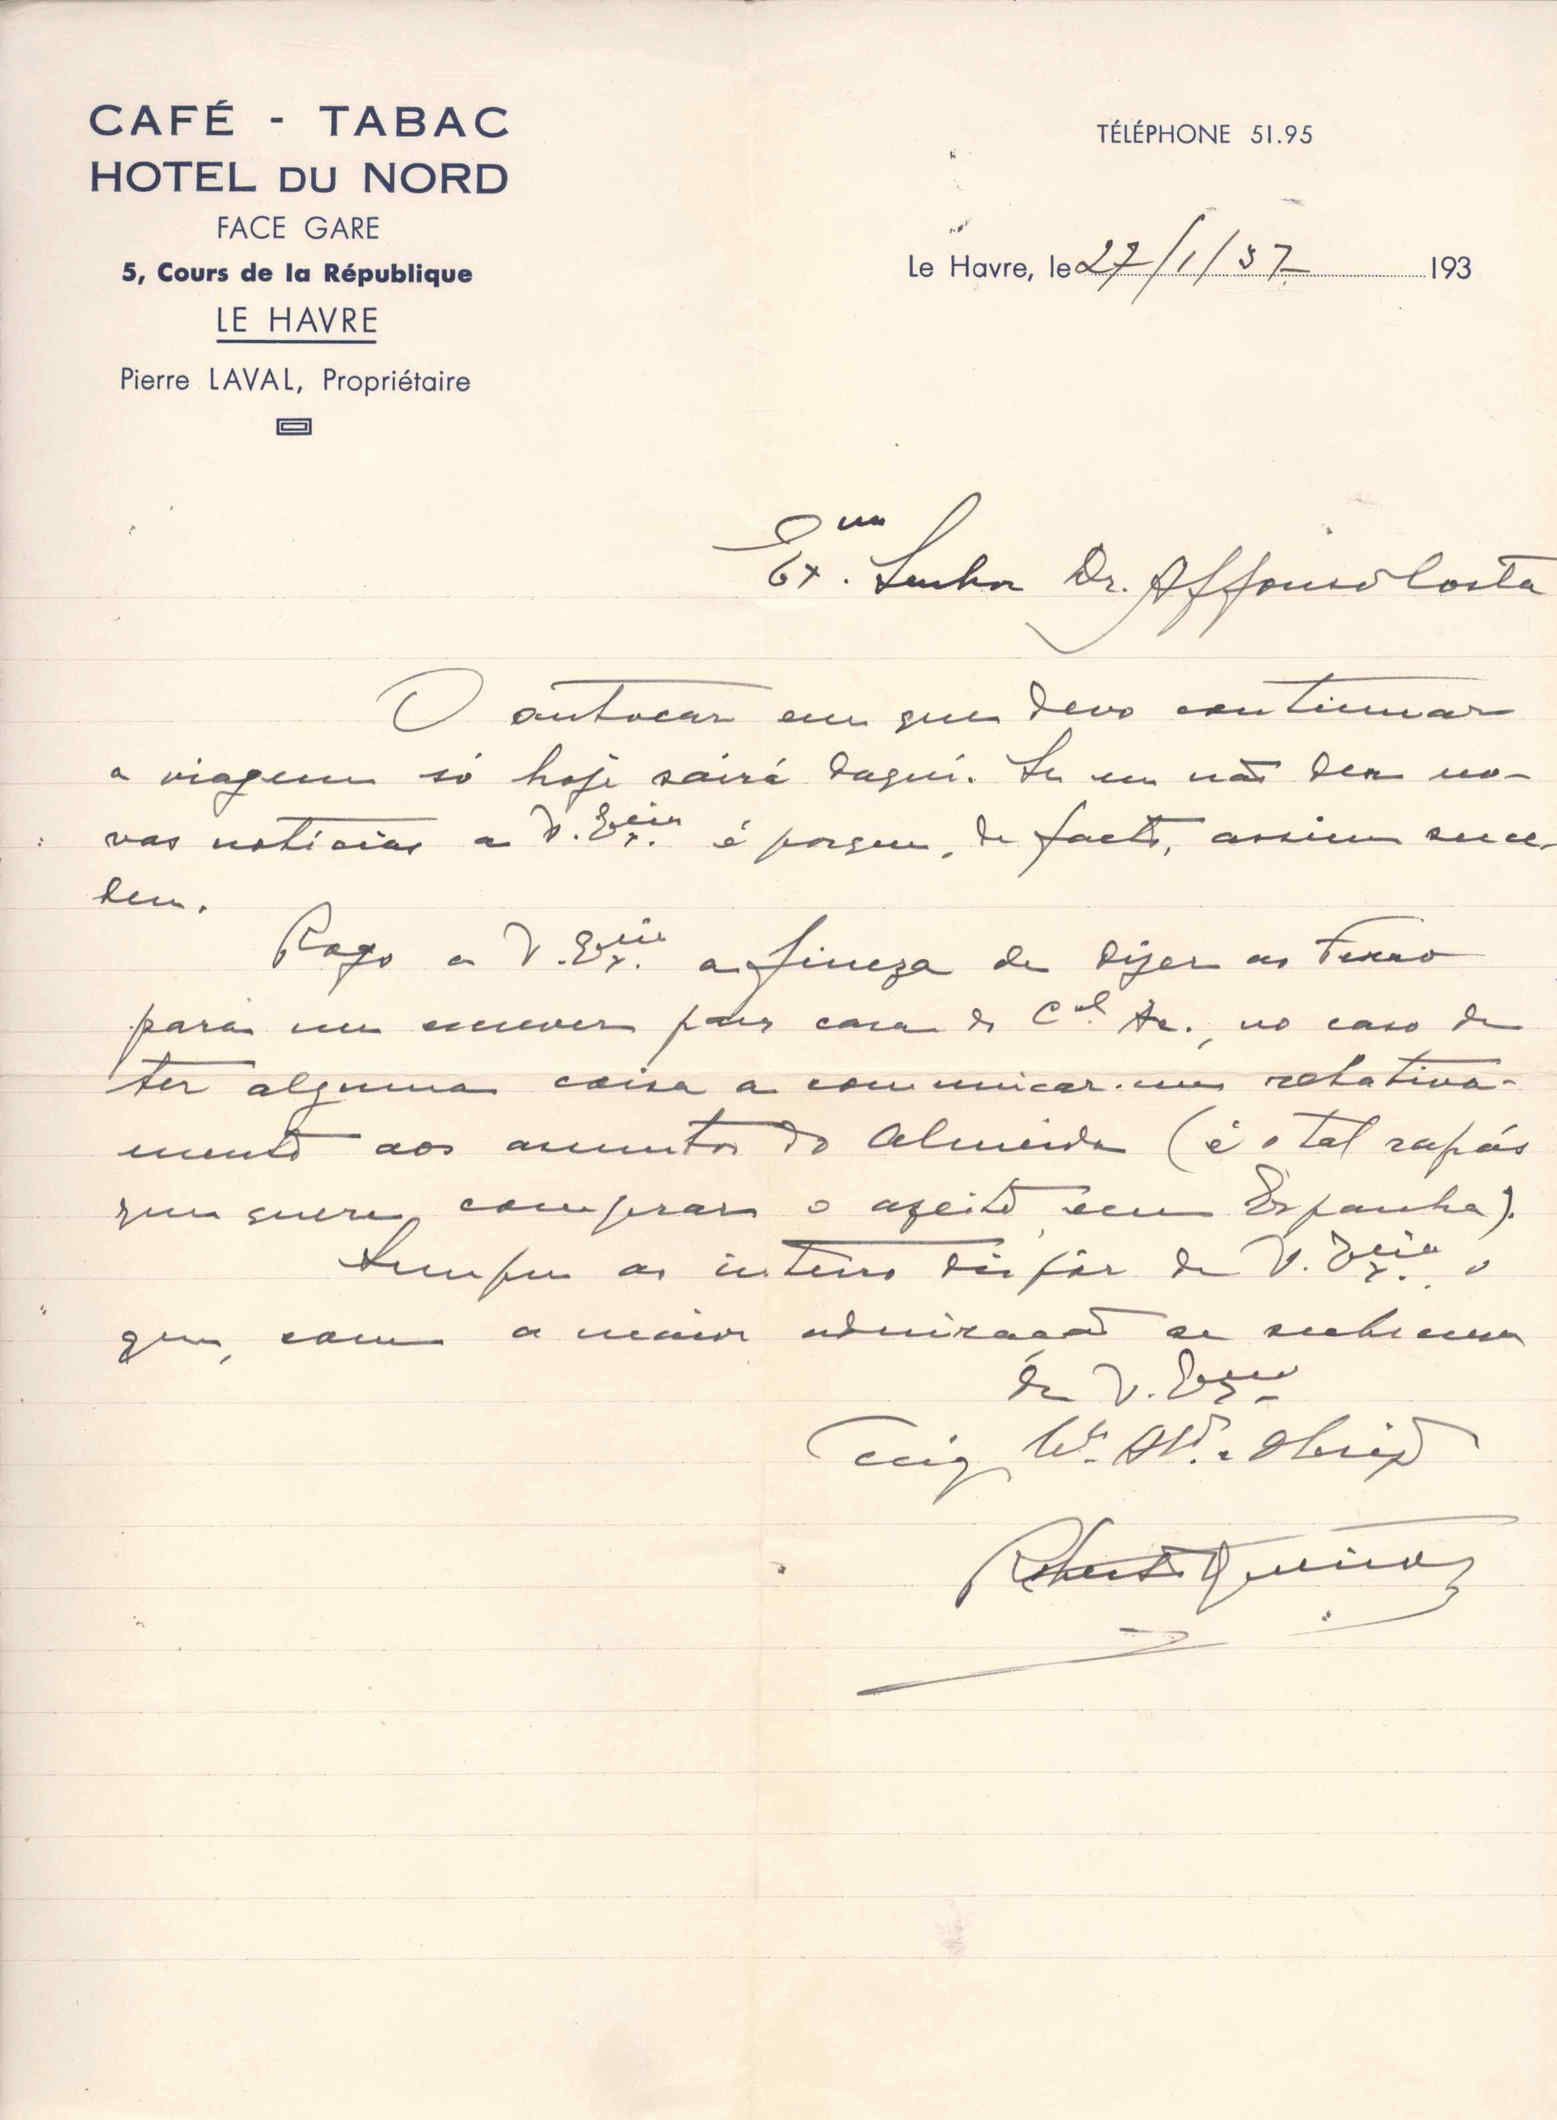 CAFÉ - TABAC
HOTEL DU NORD
FACE GARE
5, Cours de la République
LE HAVRE
Pierre LAVAL, Propriétaire
TÉLÉPHONE 51.95
Le Havre, le 27/1/37 193
Exmo. Senhor Dr. Affonso Costa
O autocar em que devo continuar
a viagem só hoje sairá daqui. Se eu não der no-
vas notícias a V. Excia. é porque, de facto, assim suce-
deu.
Rogo a V. Excia. a fineza de dizer ao Ferro
para me escrever para casa do Cel. , no caso de
ter alguma coisa a comunicar-me relativa-
mente aos assuntos do Almeida (é o tal rapás
que quere comprar o azeite em Espanha).
Sempre ao inteiro dispôr de V. Excia., o
que, com a maior admiração se subscreve
de V. Excia
Roberto Queiroz